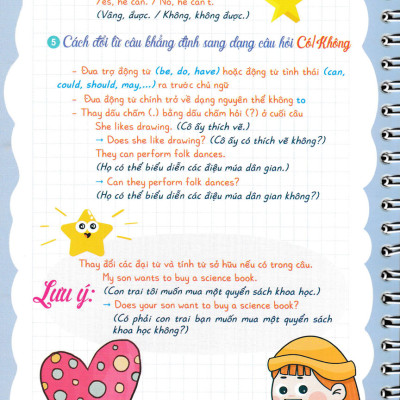 Yes, he can. / No, he can't.
(Vâng, được. / Không, không được.)
5 Cách đổi từ câu khẳng định sang dạng câu hỏi Có/Không
- Đưa trợ động từ (be, do, have) hoặc động từ tình thái (can,
could, should, may,...) ra trước chủ ngữ
- Đưa động từ chính trở về dạng nguyên thể không to
- Thay dấu chấm (.) bằng dấu chấm hỏi (?) ở cuối câu
She likes drawing. (Cô ấy thích vẽ.)
→ Does she like drawing? (Cô ấy có thích vẽ không?)
They can perform folk dances.
(Họ có thể biểu diễn các điệu múa dân gian.)
→ Can they perform folk dances?
(Họ có thể biểu diễn các điệu múa dân gian không?)
Thay đổi các đại từ và tính từ sở hữu nếu có trong câu.
My son wants to buy a science book.
Lưu ý: (Con trai tôi muốn mua một quyển sách khoa học.)
→ Does your son want to buy a science book?
(Có phải con trai bạn muốn mua một quyển sách
khoa học không?)